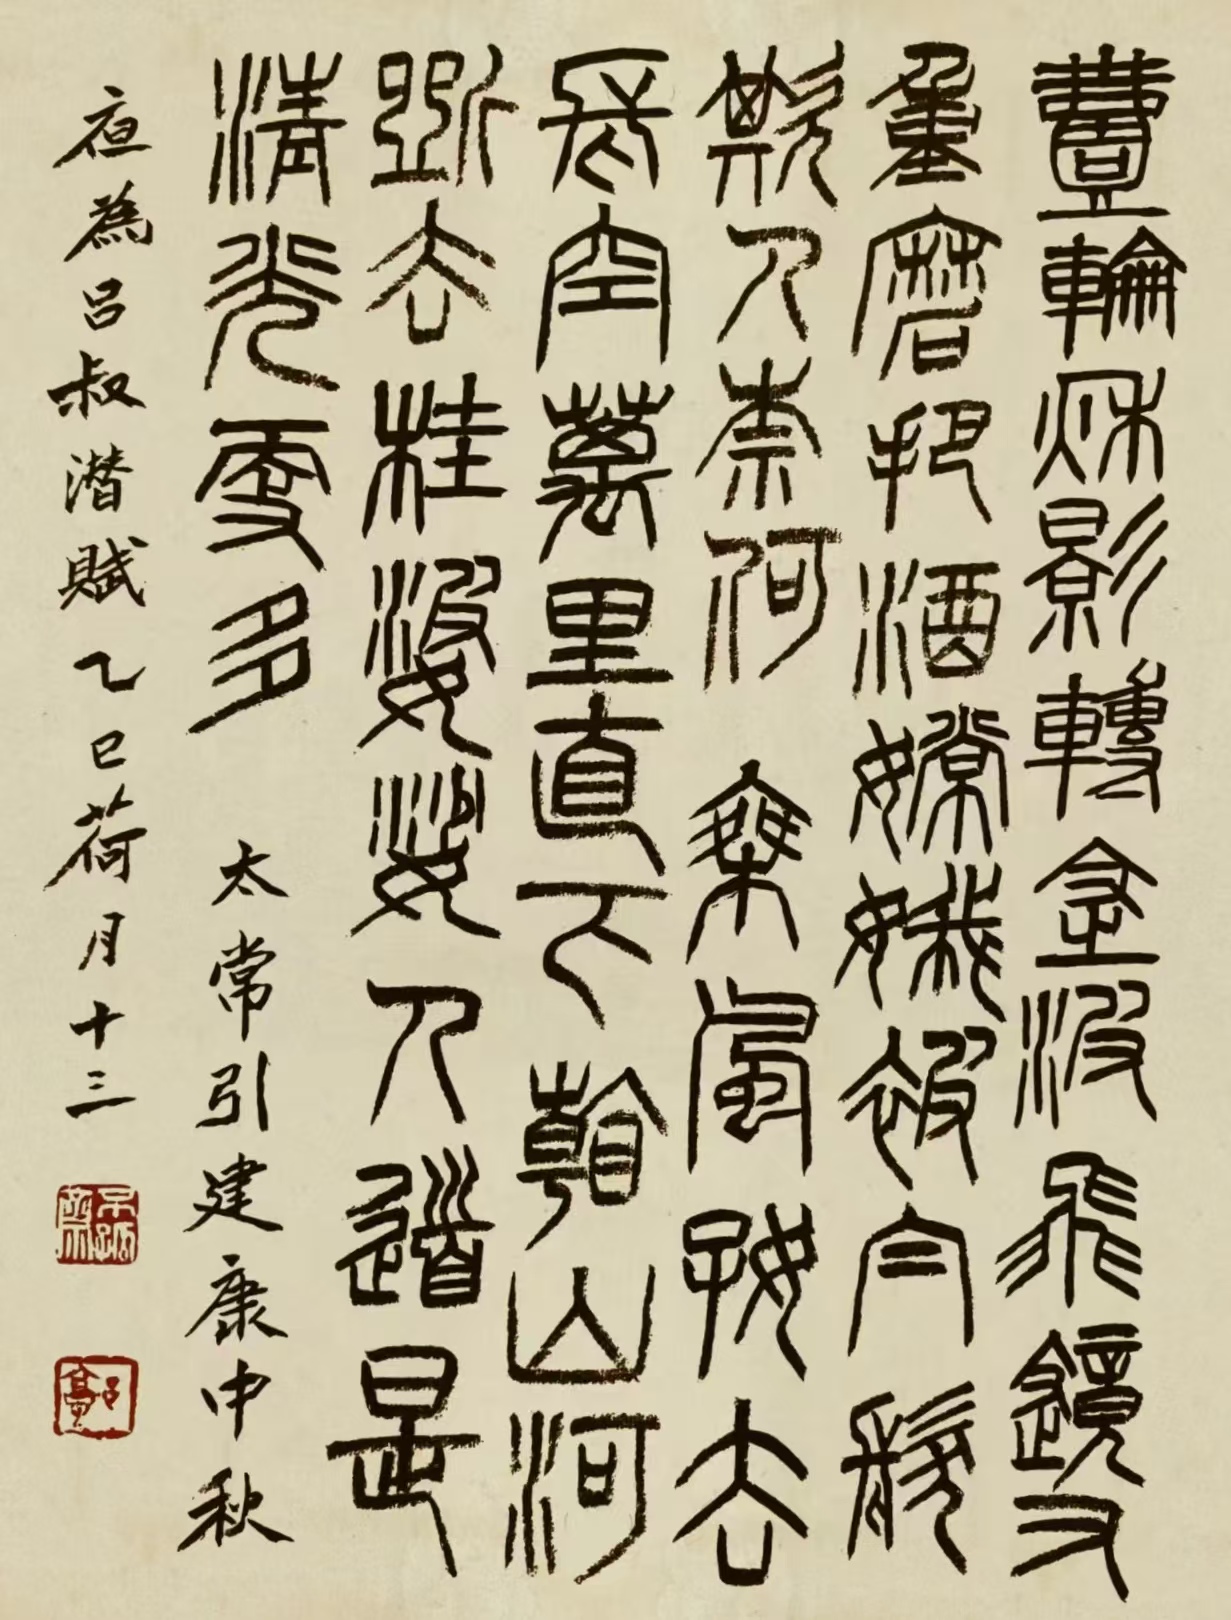 壹輪秋影轉金波飛鏡又
重磨把酒嫦娥被白髮
欺人奈何 乘風好去
長空萬里直下看山河
斫去桂婆娑人道是
清光更多
太常引建康中秋
夜為呂叔潛賦乙巳荷月十三